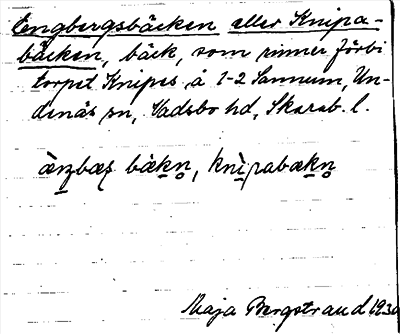 Engbergsbäcken eller Knipa-
bäcken, bäck, som rinner förbi
torpet Knipes å 1-2 Sannum, Un-
denäs sn, Vadsbo hd, Skarab. l.
knìpabækn̥
Maja Bergstrand 1930